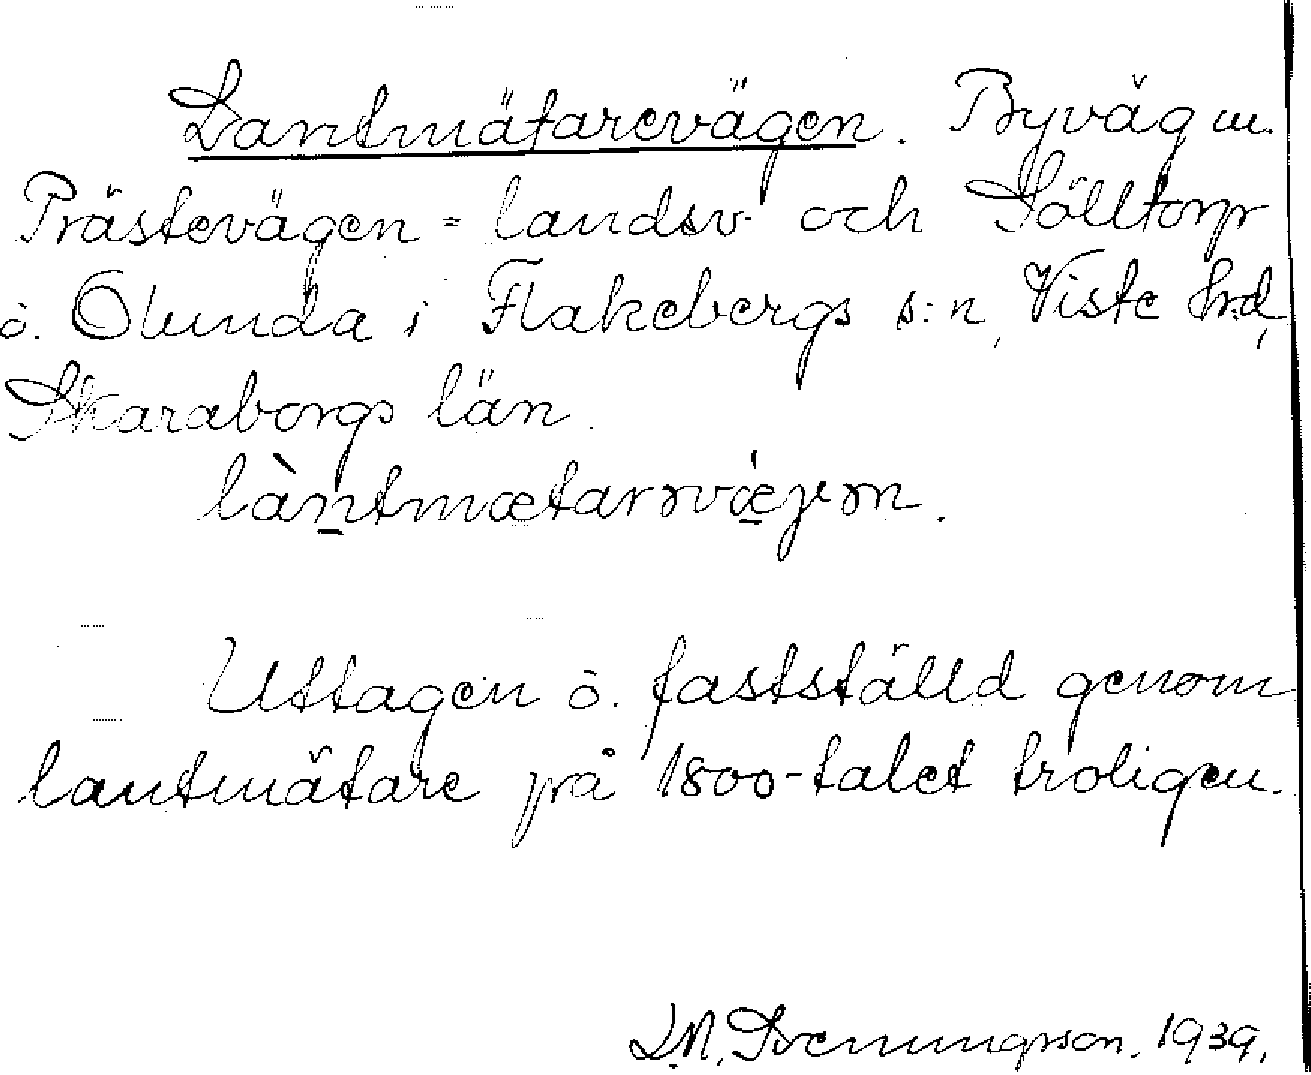 Lantmätarevägen. Byväg m.
Prästevägen = landsv. och Sölltorp
o. Olunda i Flakebergs s:n, Viste hrd,
Skaraborgs län.
làntmætarəvæ̀jən.
Uttagen o. fastställd genom
lantmätare på 1800-talet troligen.
L.M. Svenungsson. 1939.